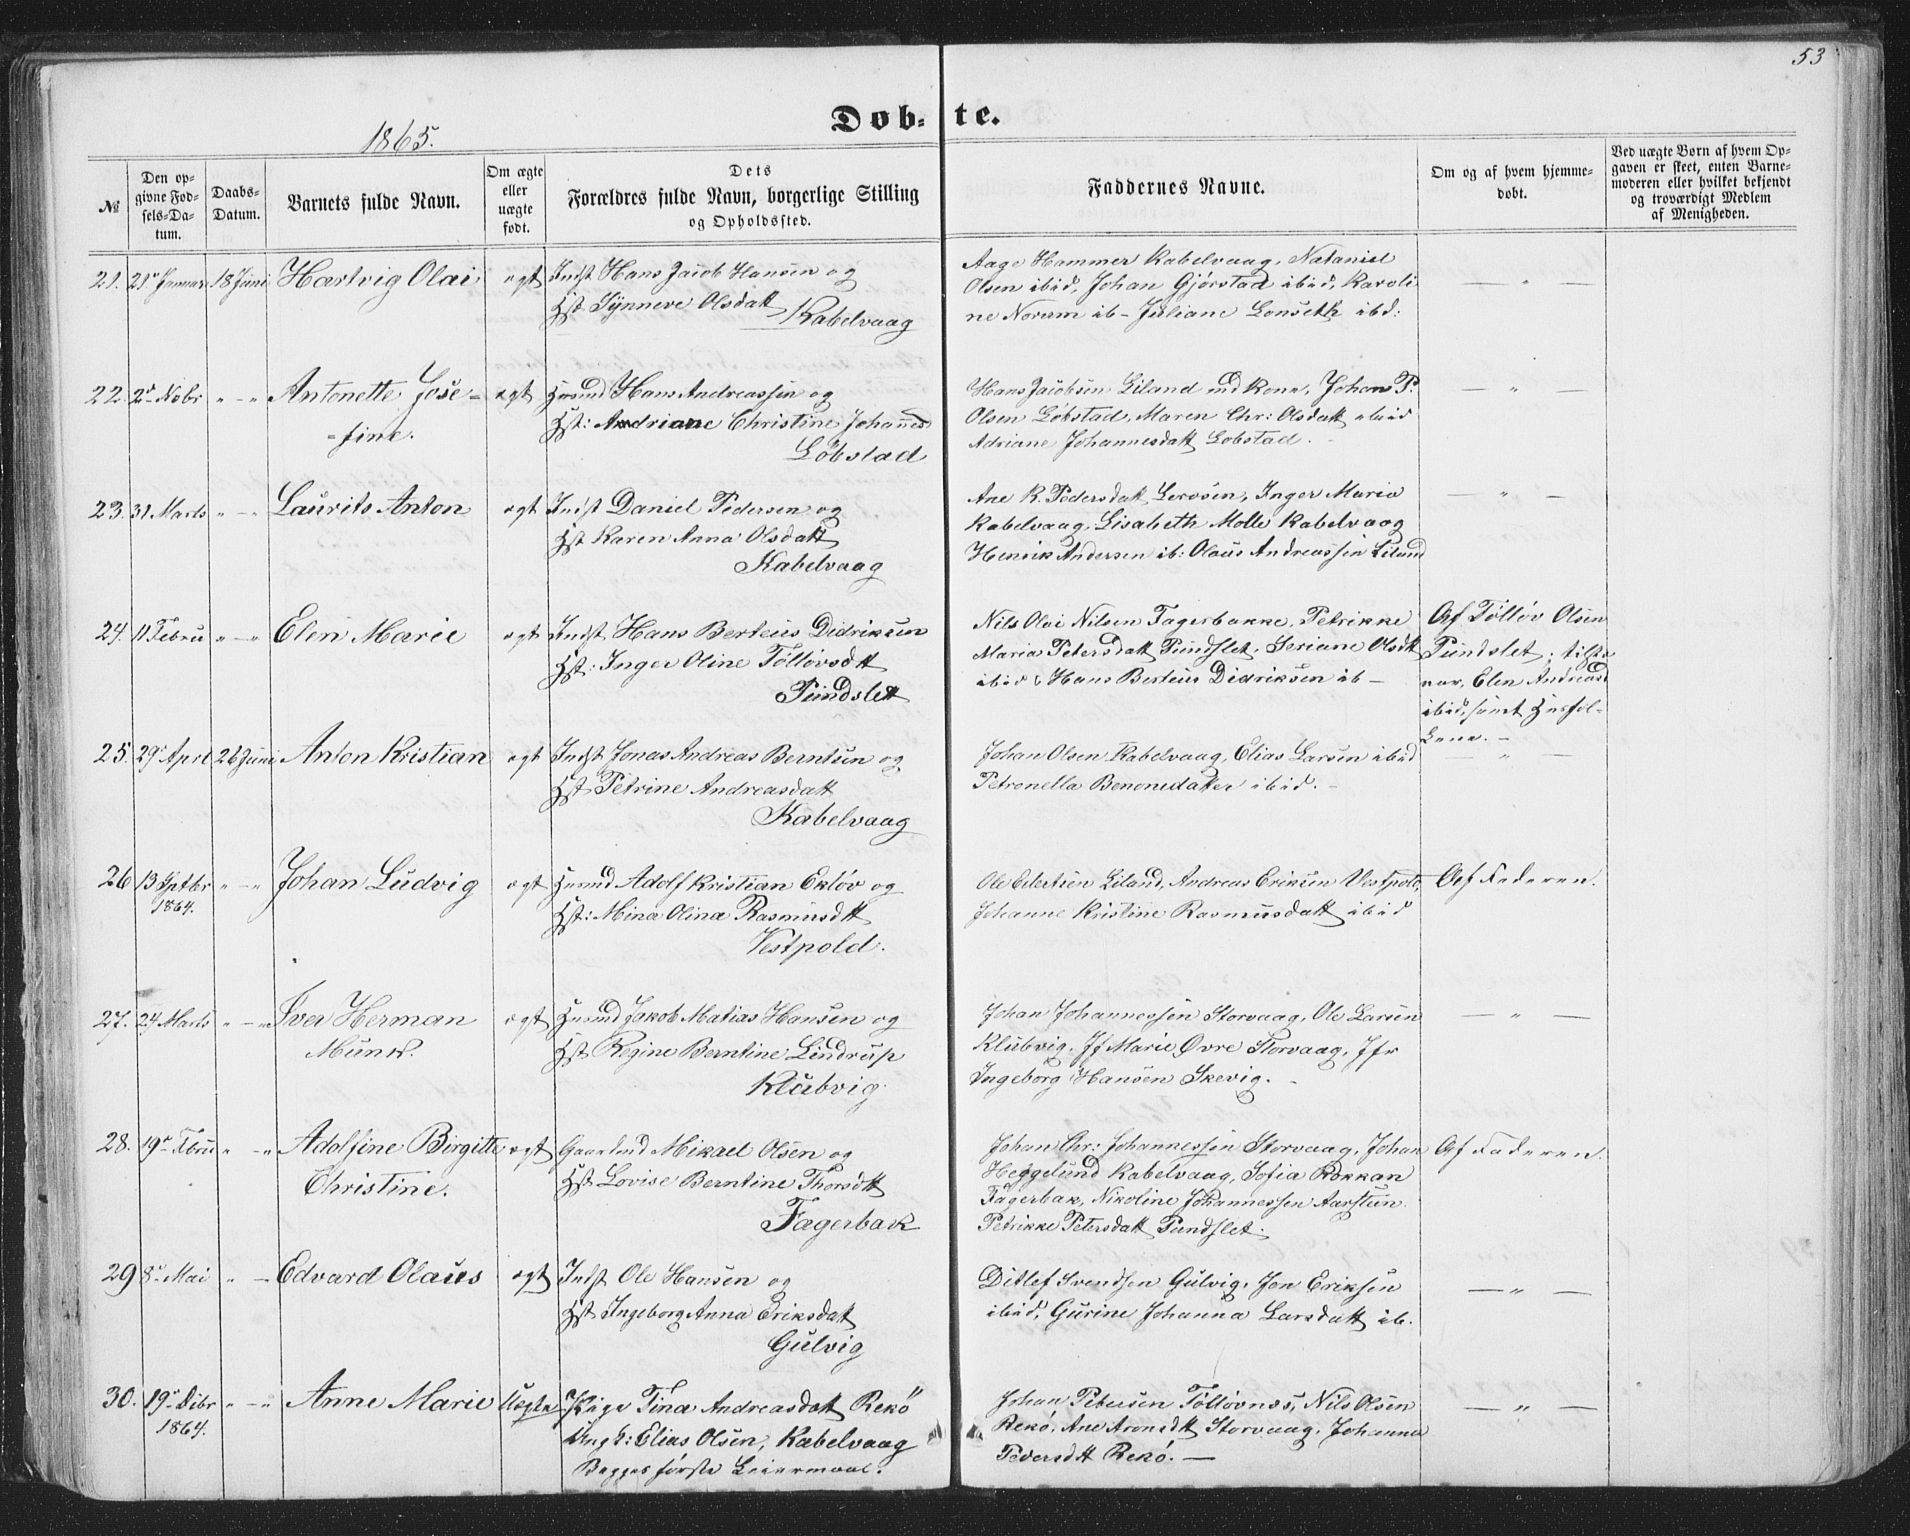 53
1865.
Døb- te.
№
Den op-
givne Fød-
sels-Da-
tum.
Daabs-
Datum.
Barnets fulde Navn.
Om ægte
eller
uægte
født.
Dets
Forældres fulde Navn, borgerlige Stilling
og Opholdssted.
Faddernes Navne.
Om og af hvem hjemme-
døbt.
Ved uægte Børn af hvem Op-
gaven er skeet, enten Barne-
moderen eller hvilket bekjendt
og troværdigt Medlem
af Menigheden.
21. 21r Januar 18 Juni Hartvig Olai ægt Indst Hans Jacob Hansen og
Hst Synneve Olsdatt
Kabelvaag
Aage Hammer Kabelvaag, Nataniel
Olsen ibid, Johan Gjørstad ibid, Karoli
ne Norum ib- Juliane Lonseth ibd:
— " —
22. 2d Nobr " — " Antonette Jose-
-fine. ægt Husmd Hans Andreassen og
Hst: Andriane Christine Johansd
Løbstad
Hans Jacobsen Liland md Kone, Johan P.
Olsen Løbstad, Maren Chr: Olsdatt ibid
Adriane Johannesdatt Lobstad.
— " —
23. 31 Marts " — " Laurits Anton ægt Indst Daniel Pedersen og
Hst Karen Anna Olsdatt
Kabelvaag
Ane R. Pedersdatt, Inger Maria
Kabelvaag, Lisabeth Molle Kabelvaag
Henrik Andersen ib: Olaus Andreassen Liland
— " —
24. 11 Febru " — " Elen Marie ægt Indst Hans Berteus Didriksen
Hst: Inger Oline Tølløvsdtt
Pundslett
Nils Olai Nilsen Fagerbakke, Petrikke
Maria Petersdatt Pundslet, Seriane Olsdtt
ibid & Hans Berteus Didriksen ib —
Af Tølløv Olsen
Pundslet; tilste
var, Elen Andreasd
ibid, samt Husfol-
kene. —
25. 29 Aprl 26 Juni Anton Kristian ægt Indst Jonas Andreas Berntsen og
Hst Petrine Andreasdatt
Kabelvaag
Johan Olsen Kabelvaag, Elias Larsen ibid
Petronella Benonedatter ibid. —
— " —
26 13 Sptbr
1864. " — " Johan Ludvig ægt Husmd Adolf Kristian Ekløv og
Hst: Mina Olina Rasmusdtt
Vestpold.
Ole Eilertsen Liland, Andreas Eriksen Vestpold,
Johanne Kristine Rasmusdatt ibid
Af Faderen.
27. 24 Marts " — " Iver Herman
Munid. ægt Husmd Jakob Matias Hansen og
Hst Regine Berntine Lindrup
Klubvig.
Johan Johannessen Storvaag, Ole Larsen
Klubvig, Jf Marie Øvre Storvaag, Jfr
Ingeborg Hansen Skevig. —
— " —
28. 19r Fbru " — " Adolfine Birgitte
Christine. ægt Gaardmd Mikael Olsen og
Hst Lovise Berntine Thorsdtt
Fagerbak
Johan Chr: Johannessen Storvaag, Johan
Heggelund Kabelvaag, Sofia Rokkan
Fagerbak, Nikoline Johannessen Aarstein.
Petrikke Petersdatt Pundslet.
Af Faderen.
29 8r Mai " — Edvard Olaus ægt Indst Ole Hansen og
Hst Ingeborg Anna Eriksdatt
Gulvig
Ditlef Svendsen Gulvig, Jon Eriksen
ibid, Gurine Johanna Larsdatt ib.
— " —
30. 19r Dcbr
1864. " — " Anne Marie Uægte Pige Tina Andreasdatt Rekø
Ungk: Elias Olsen, Kabelvaag
Begges første Leiermaal.
Johan Petersen Tølløvnes, Nils Olsen
Rekø, Ane Aronsdtt Storvaag, Johanna
Pedersdtt Rekø. —
— " —